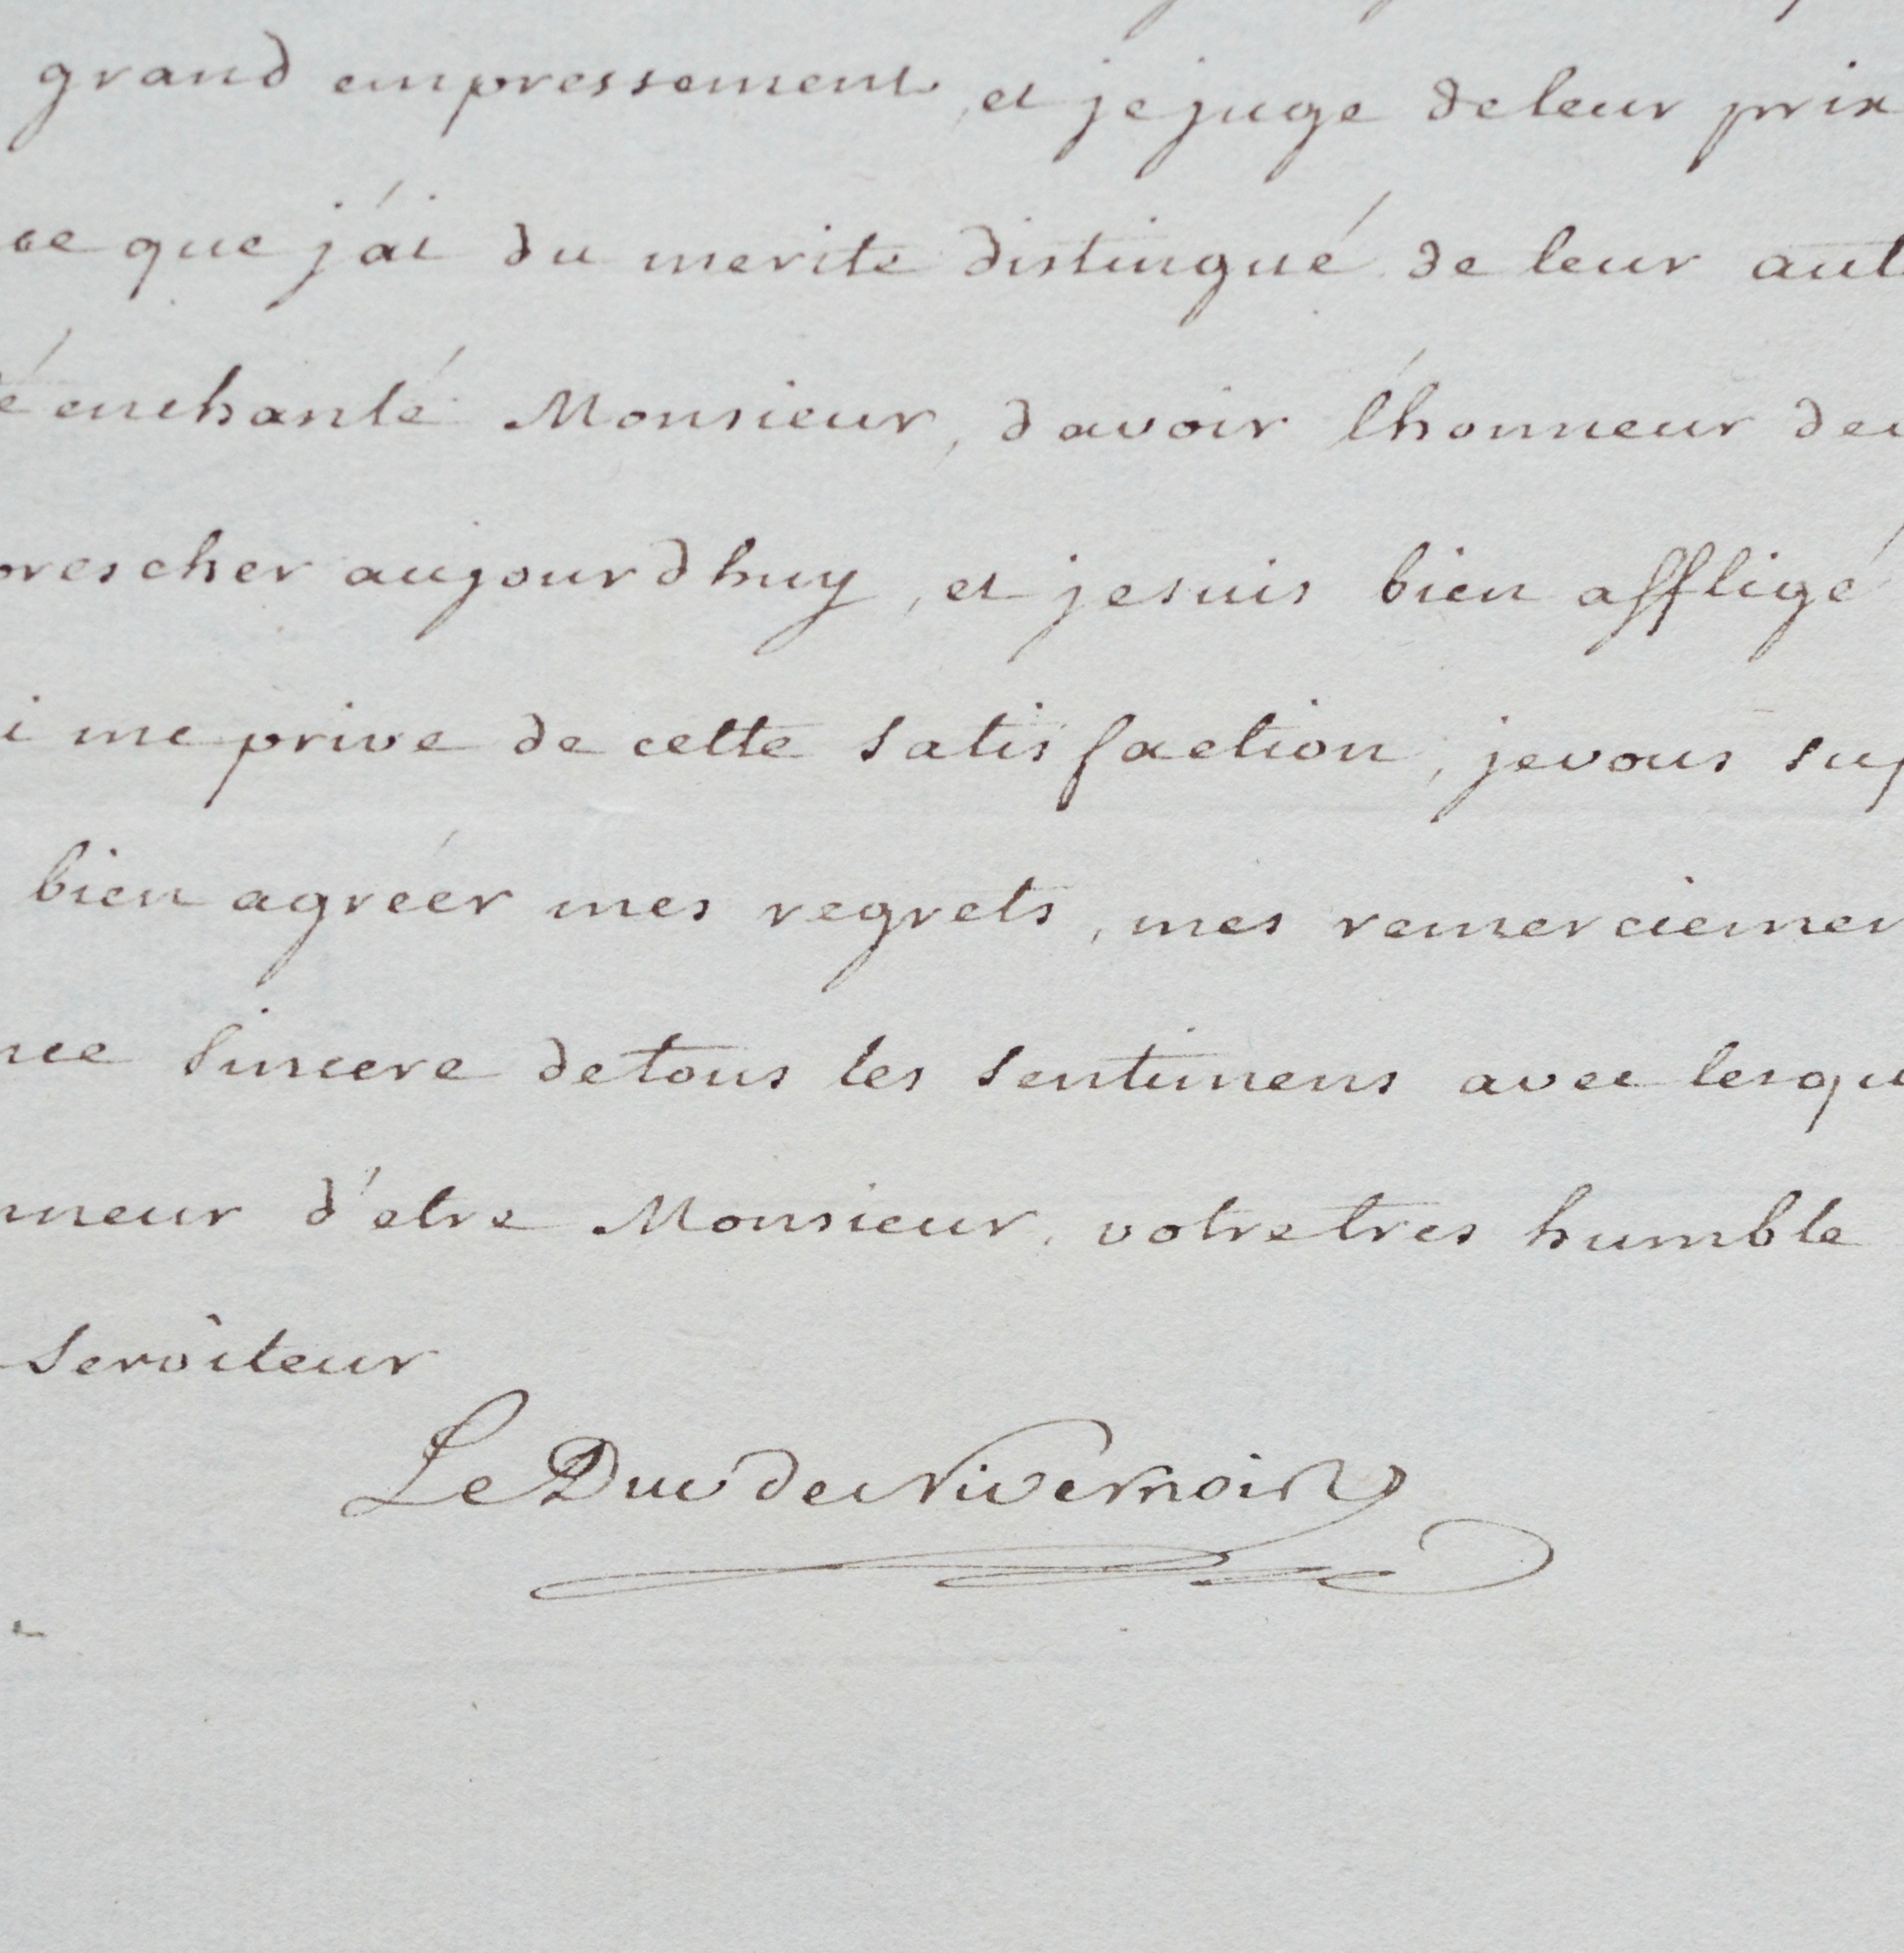 grand empressement, et je juge de leur prix
ce que j'ai du merite distingué de leur aut
é enchanté Monsieur, davoir l'honneur de
prescher aujourdhuy, et je suis bien affligé
i me prive de cette satisfaction, je vous sup
bien agréer mes regrets, mes remerciemen
nce sincere de tous les sentimens avec lesqu
nneur d'etre Monsieur, votre tres humble
serviteur
Le Duc de Nivernois